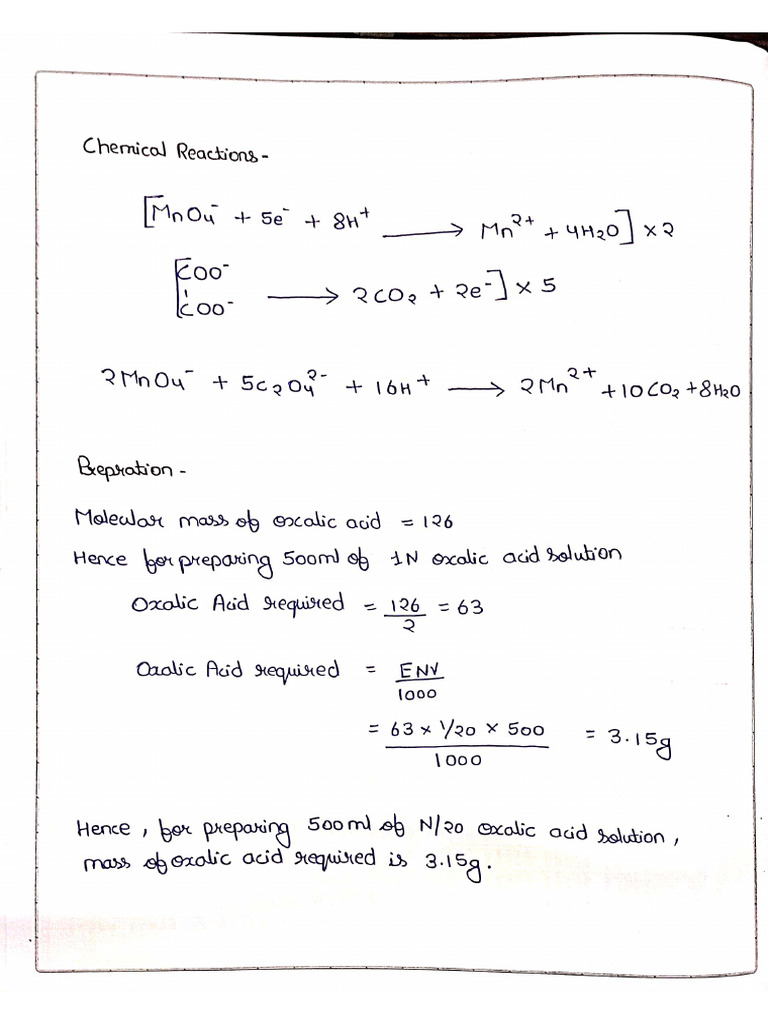 Chemical Reactions-
[MnO4⁻ + 5e⁻ + 8H⁺ ⟶ Mn²⁺ + 4H2O] x 2
[COO⁻
COO⁻ ⟶ 2CO2 + 2e⁻] x 5
2MnO4⁻ + 5C2O4²⁻ + 16H⁺ ⟶ 2Mn²⁺ + 10CO2 + 8H2O
Prepration -
Molecular mass of oxalic acid = 126
Hence for preparing 500ml of 1N oxalic acid solution
Oxalic Acid required = 126/2 = 63
Oxalic Acid required = ENV/1000
= 63 x 1/20 x 500/1000 = 3.15g
Hence, for preparing 500ml of N/20 oxalic acid solution,
mass of oxalic acid required is 3.15g.